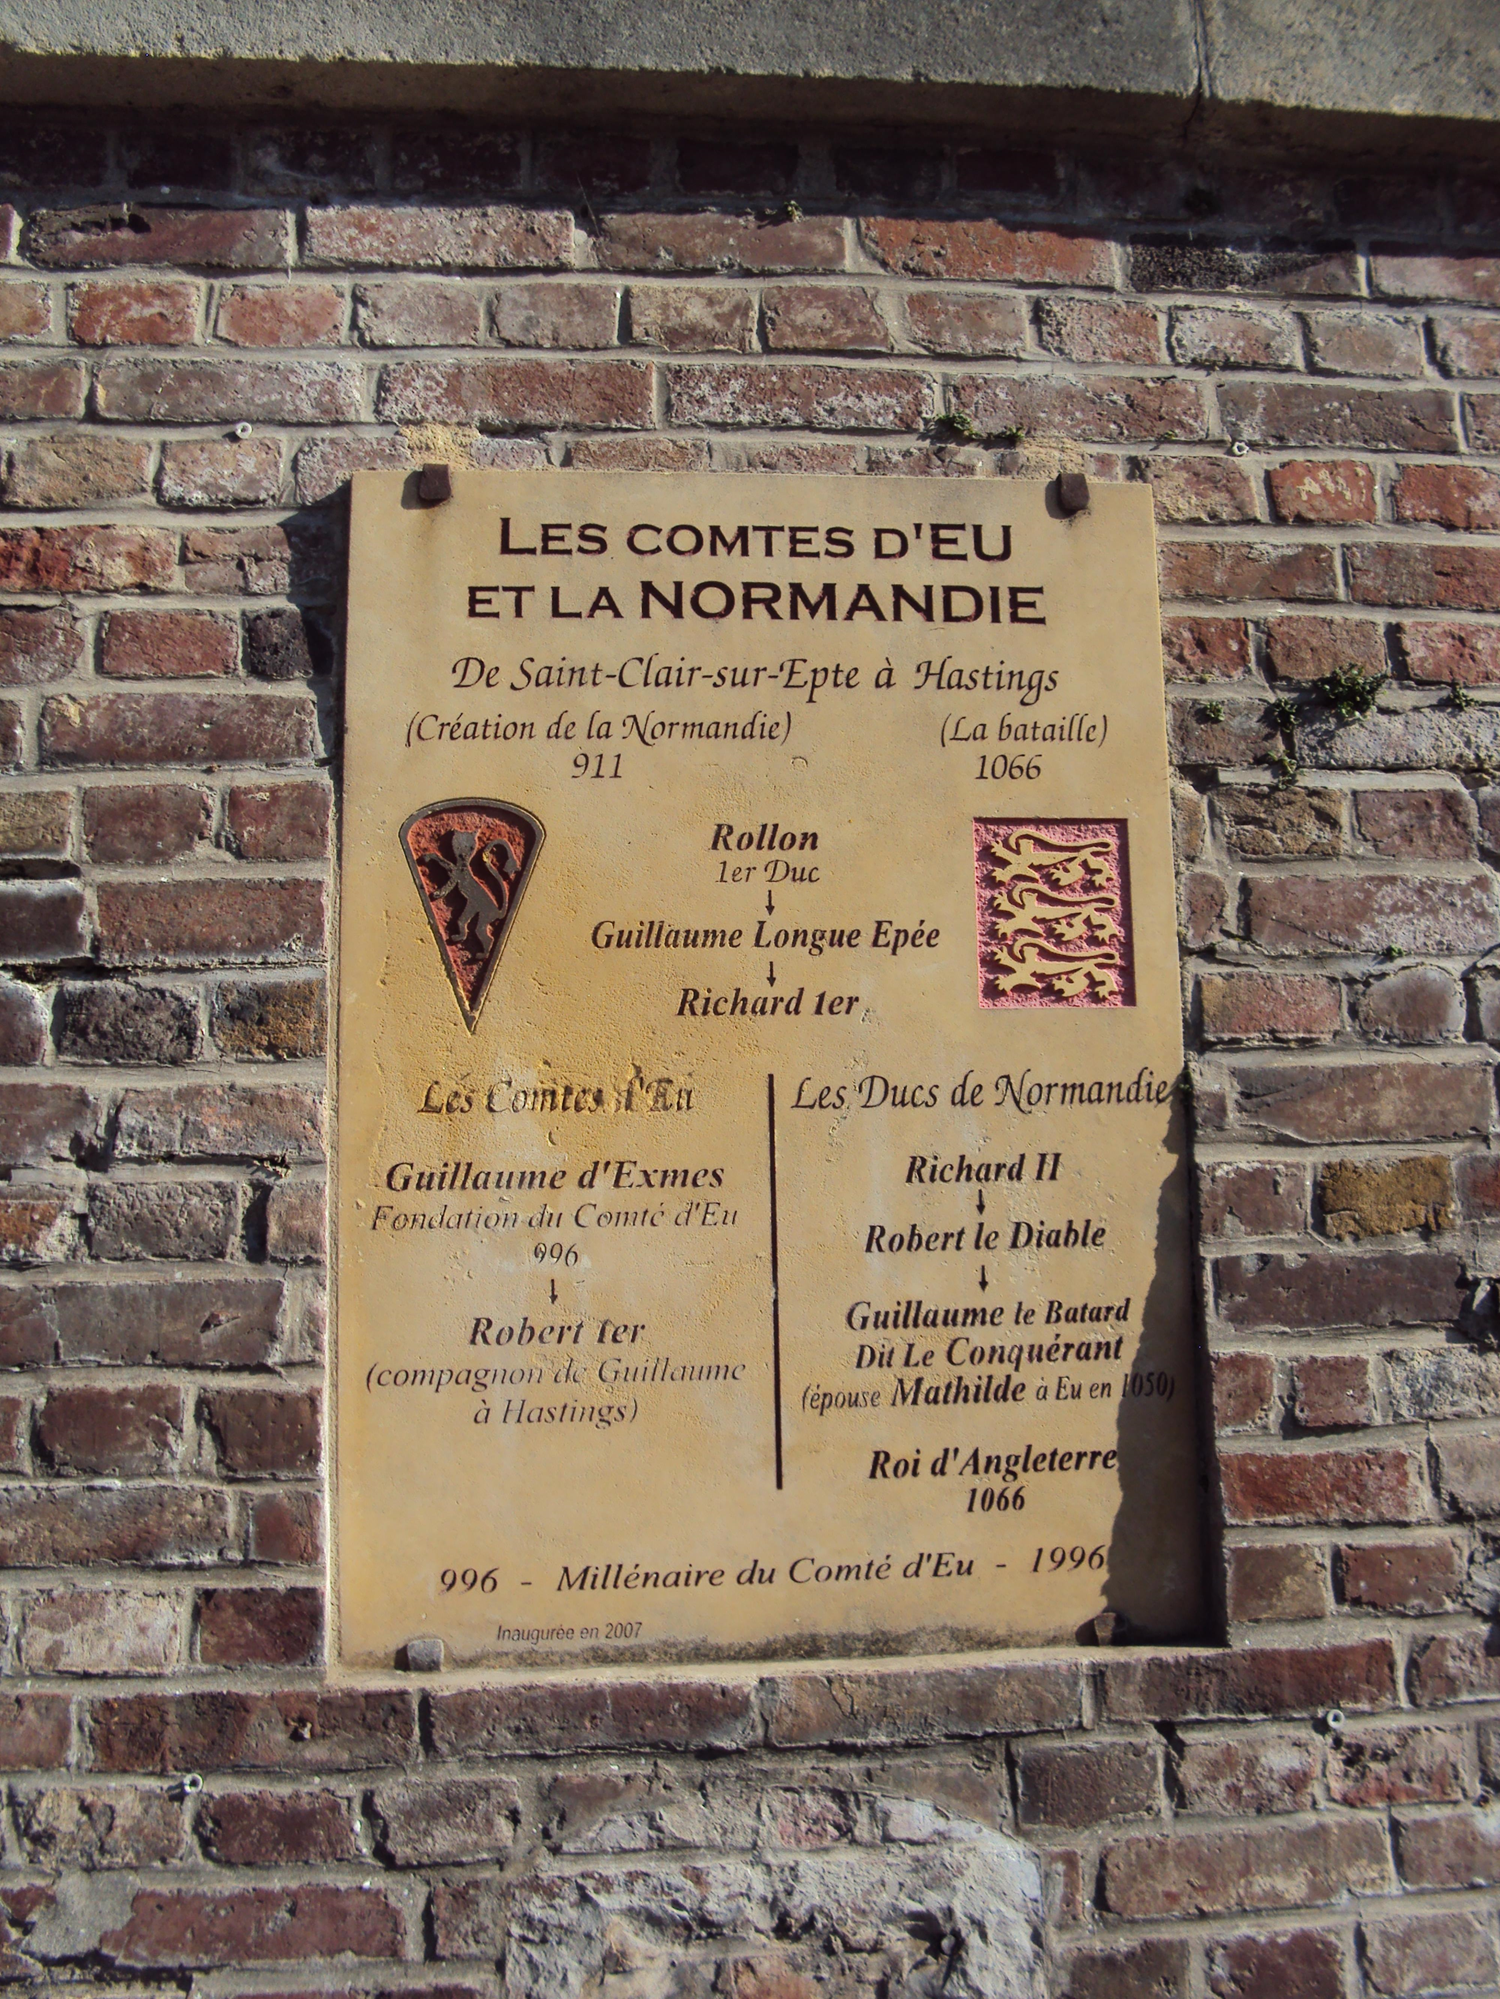 LES COMTES D'EU
ET LA NORMANDIE
De Saint-Clair-sur-Epte à Hastings
(Création de la Normandie) (La bataille)
911 1066
Rollon
1er Duc
↓
Guillaume Longue Epée
↓
Richard 1er
Les Comtes d'Eu
Guillaume d'Exmes
Fondation du Comté d'Eu
996
↓
Robert 1er
(compagnon de Guillaume
à Hastings)
Les Ducs de Normandie
Richard II
↓
Robert le Diable
↓
Guillaume le Batard
Dit Le Conquérant
(épouse Mathilde à Eu en 1050)
Roi d'Angleterre
1066
996 - Millénaire du Comté d'Eu - 1996
Inaugurée en 2007